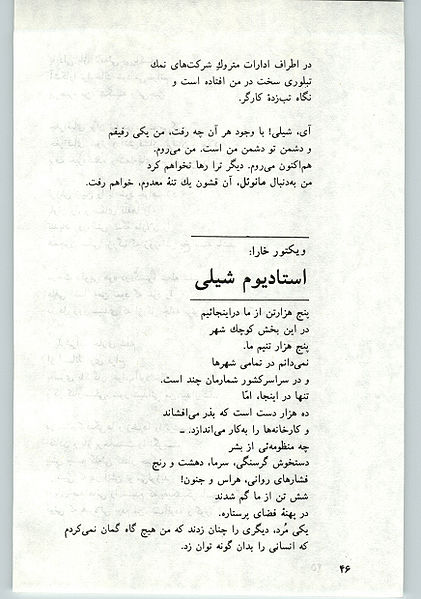 در اطراف ادارات متروكِ شرکت‌های نمك
تبلوری سخت در من افتاده است و
نگاه تب‌زدهٔ کارگر.
آی، شیلی! با وجود هر آن چه رفت، من یکی رفیقم
و دشمن تو دشمن من است. من می‌روم.
هم‌اکنون می‌روم. دیگر ترا رها نخواهم کرد
من به‌دنبال مانوئل، آن قشون یك تنهٔ معدوم، خواهم رفت.
ویکتور خارا:
استادیوم شیلی
پنج هزارتن از ما دراینجائیم
در این بخش کوچك شهر
پنج هزار تنیم ما.
نمی‌دانم در تمامی شهرها
و در سراسرکشور شمارمان چند است.
تنها در اینجا، امّا
ده هزار دست است که بذر می‌افشاند
و کارخانه‌ها را به‌کار می‌اندازد. ــ
چه منظومه‌ئی از بشر
دستخوش گرسنگی، سرما، دهشت و رنج
فشارهای روانی، هراس و جنون!
شش تن از ما گم شدند
در پهنهٔ فضای پرستاره.
یکی مُرد، دیگری را چنان زدند که من هیچ گاه گمان نمی‌کردم
که انسانی را بدان گونه توان زد.
۴۶